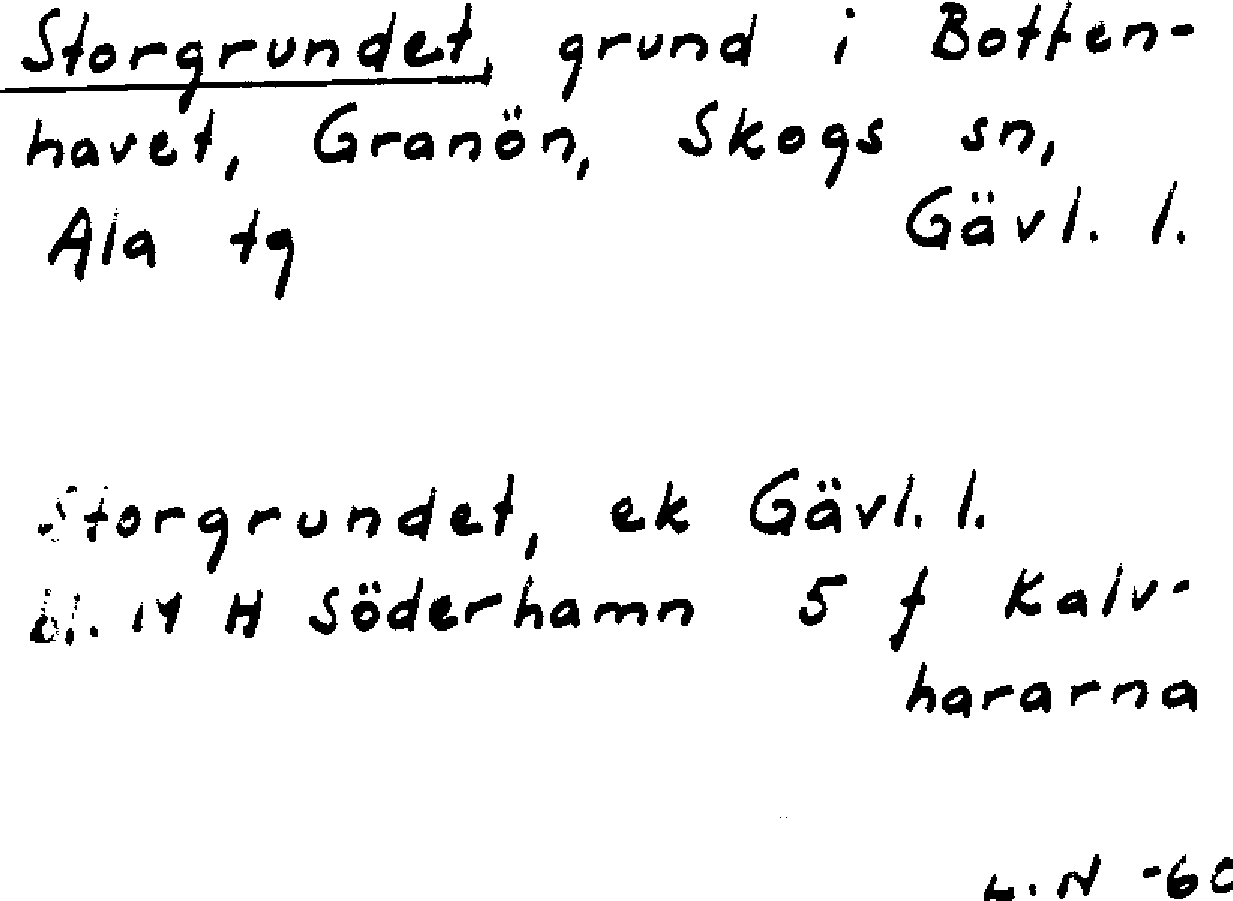 Storgrundet, grund i Botten-
havet, Granön, Skogs sn,
Ala tg Gävl. l.
Storgrundet, ek Gävl. l.
bl. 14 H Söderhamn 5 f Kalv-
hararna
L. N -60